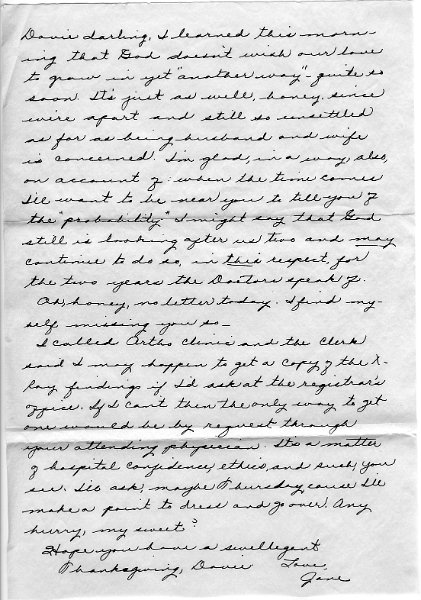 Davie darling, I learned this morn-
ing that God doesn't wish our love
to grow in yet "another way" - quite so
soon. It's just as well, honey, since
we're apart and still so unsettled
as far as being husband and wife
is concerned. I'm glad, in a way, also,
on account of: when the time comes
I'll want to be near you to tell you of
the "probability." I might say that God
still is looking after us two and may
continue to do so, in this respect, for
the two years the Doctors speak of.
Oh, honey, no letter today. I find my-
self missing you so_
I called Ortho Clinic and the Clerk
said I may happen to get a copy of the X-
Ray findings if I'd ask at the registrar's
office. If I can't then the only way to get
one would be by request through
your attending physician. It's a matter
of hospital confidence, ethics, and such, you
see. I'll ask, maybe Thursday, cause I'll
make a point to dress and go over. Any
hurry, my sweet?
Hope you have a swellegant
Thanksgiving, Davie Love,
Jane